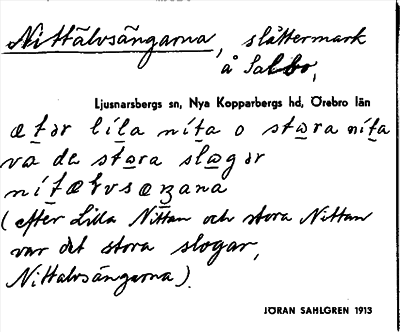 Nittälvsängarna, slåttermark
å Salbo,
Ljusnarsbergs sn, Nya Kopparbergs hd, Örebro län
ætər líla níta o stɷra níta
va de stɷra slɷgər
nítælvsæŋana
(efter Lilla Nittan och stora Nittan
var det stora slogar,
Nittalvsängarna).
JÖRAN SAHLGREN 1913